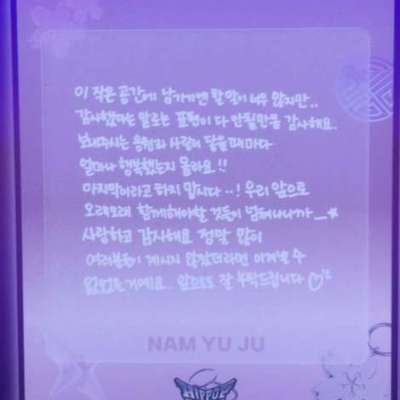 이 작은 공간에 남기기엔 할 말이 너무 많지만..
감사했다는 말로는 표현이 다 안될만큼 감사해요.
보내주시는 응원과 사랑이 닿을때마다
얼마나 행복했는지 몰라요!!
마지막이라고 하지 맙시다..! 우리 앞으로
오래오래 함께해야할 것들이 넘쳐나니까
사랑하고 감사해요 정말 많이
여러분들이 계시지 않았더라면 이겨낼 수
없었을거예요. 앞으로도 잘 부탁드립니다♡
NAM YU JU